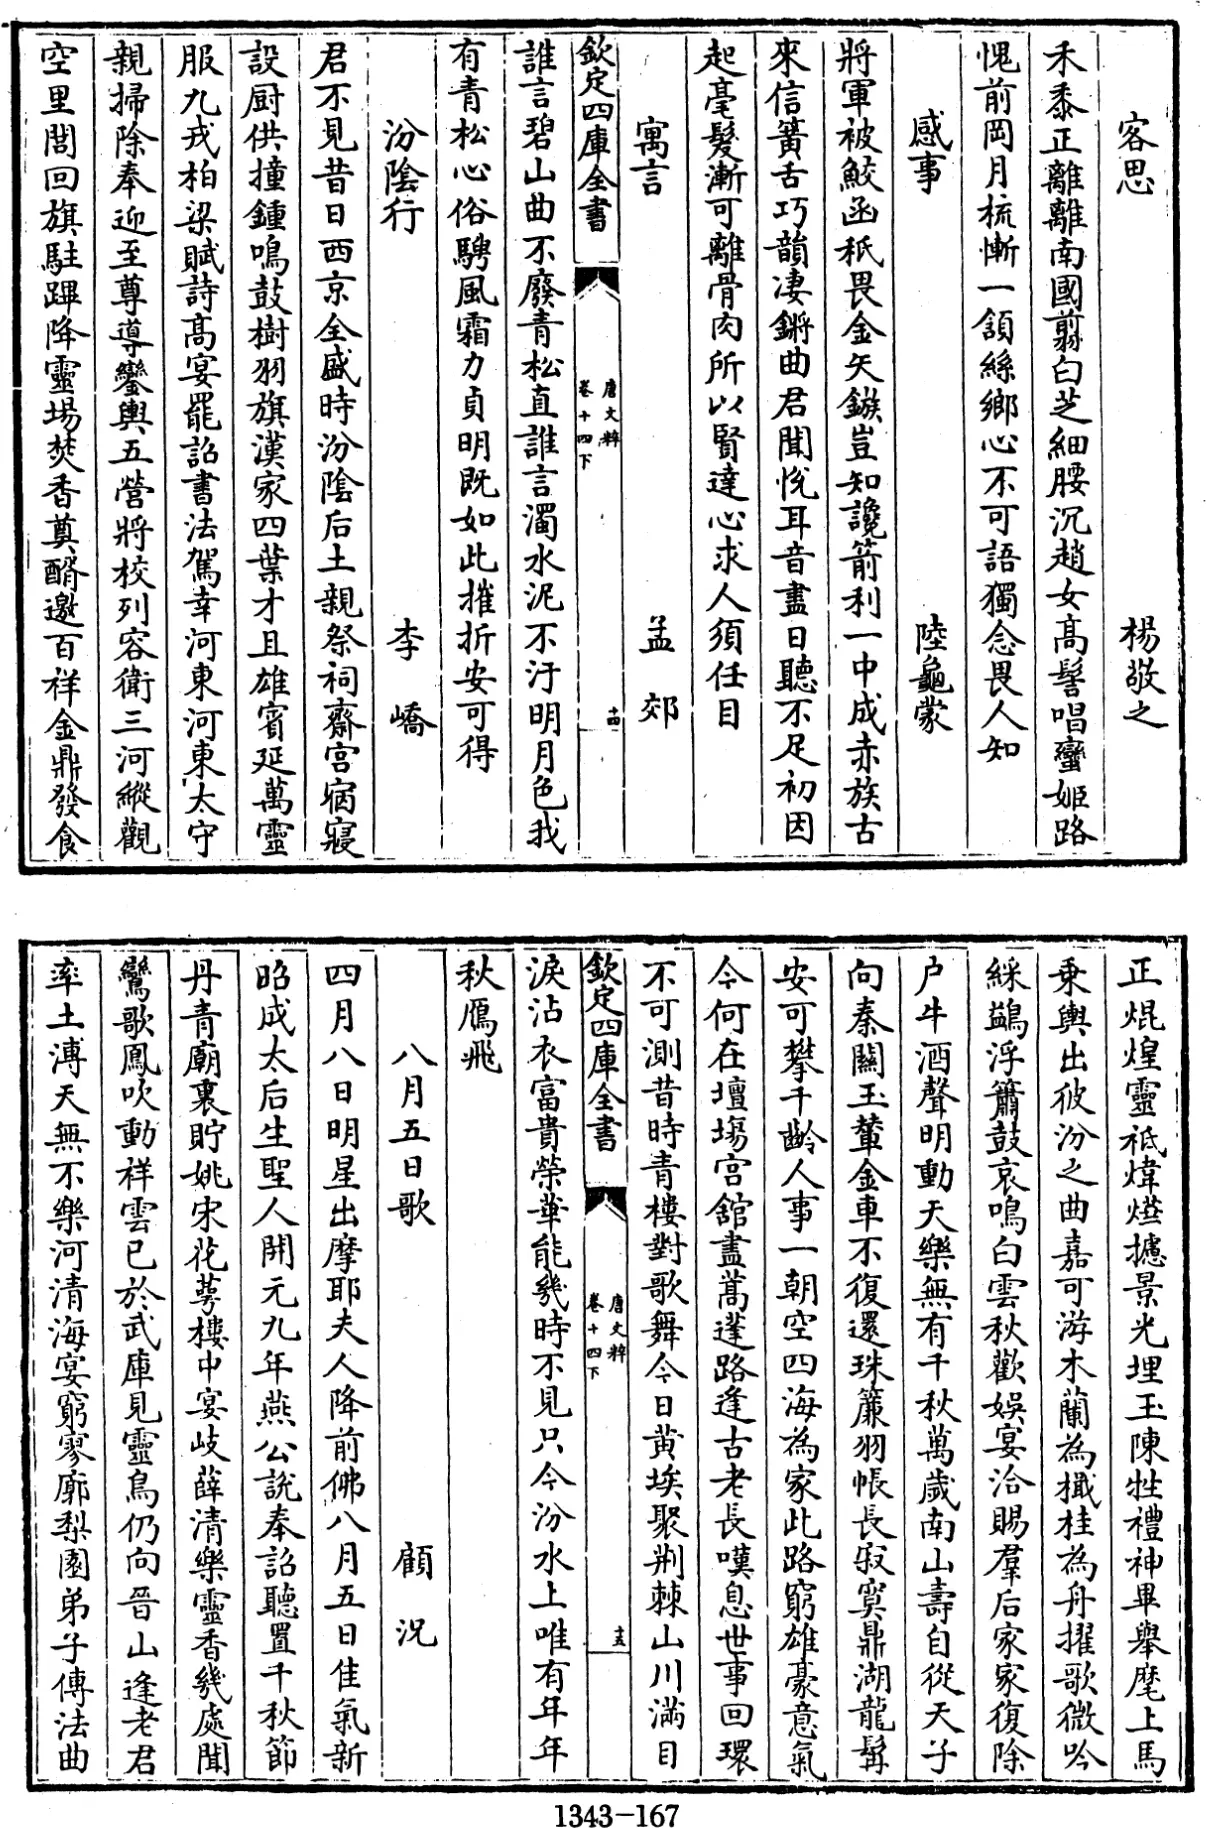 客思 楊敬之
禾黍正離離南國翦白芝細腰沉趙女高髻唱蠻姬路
愧前岡月梳慚一頷絲鄉心不可語獨念畏人知
感事 陸龜蒙
將軍被鮫函秖畏金矢鏃豈知讒箭利一中成赤族古
來信簧舌巧韻淒鏘曲君聞悅耳音盡日聽不足初因
起毫髮漸可離骨肉所以賢達心求人須任目
寓言 孟郊
欽定四庫全書 唐文粹 卷十四下 十四
誰言碧山曲不廢青松直誰言濁水泥不汙明月色我
有青松心俗騁風霜力貞明既如此摧折安可得
汾陰行 李嶠
君不見昔日西京全盛時汾陰后土親祭祠齋宮宿寢
設厨供撞鍾鳴鼓樹羽旗漢家四葉才且雄賓延萬靈
服九戎柏梁賦詩高宴罷詔書法駕幸河東河東太守
親掃除奉迎至尊導鑾輿五營將校列容衛三河縱觀
空里閭回旗駐蹕降靈場焚香奠醑邀百祥金鼎發食
正焜煌靈祇煒燁攄景光埋玉陳牲禮神畢舉麾上馬
乗輿出彼汾之曲嘉可游木蘭為檝桂為舟擢歌微吟
綵鷁浮簫鼓哀鳴白雲秋歡娛宴洽賜羣后家家復除
户牛酒聲明動天樂無有千秋萬歲南山壽自從天子
向秦關玉輦金車不復還珠簾羽帳長寂寞鼎湖龍髯
安可攀千齡人事一朝空四海為家此路窮雄豪意氣
今何在壇場宮館盡蒿蓬路逢古老長嘆息世事回環
不可測昔時青樓對歌舞今日黄埃聚荆棘山川滿目
欽定四庫全書 唐文粹 卷十四下 十五
淚沾衣富貴榮華能幾時不見只今汾水上唯有年年
秋鴈飛
八月五日歌 顧况
四月八日明星出摩耶夫人降前佛八月五日佳氣新
昭成太后生聖人開元九年燕公說奉詔聽置千秋節
丹青廟裏貯姚宋花萼樓中宴岐薛清樂靈香幾處聞
鸞歌鳳吹動祥雲已於武庫見靈鳥仍向晉山逢老君
率土溥天無不樂河清海宴窮寥廓梨園弟子傳法曲
1343-167